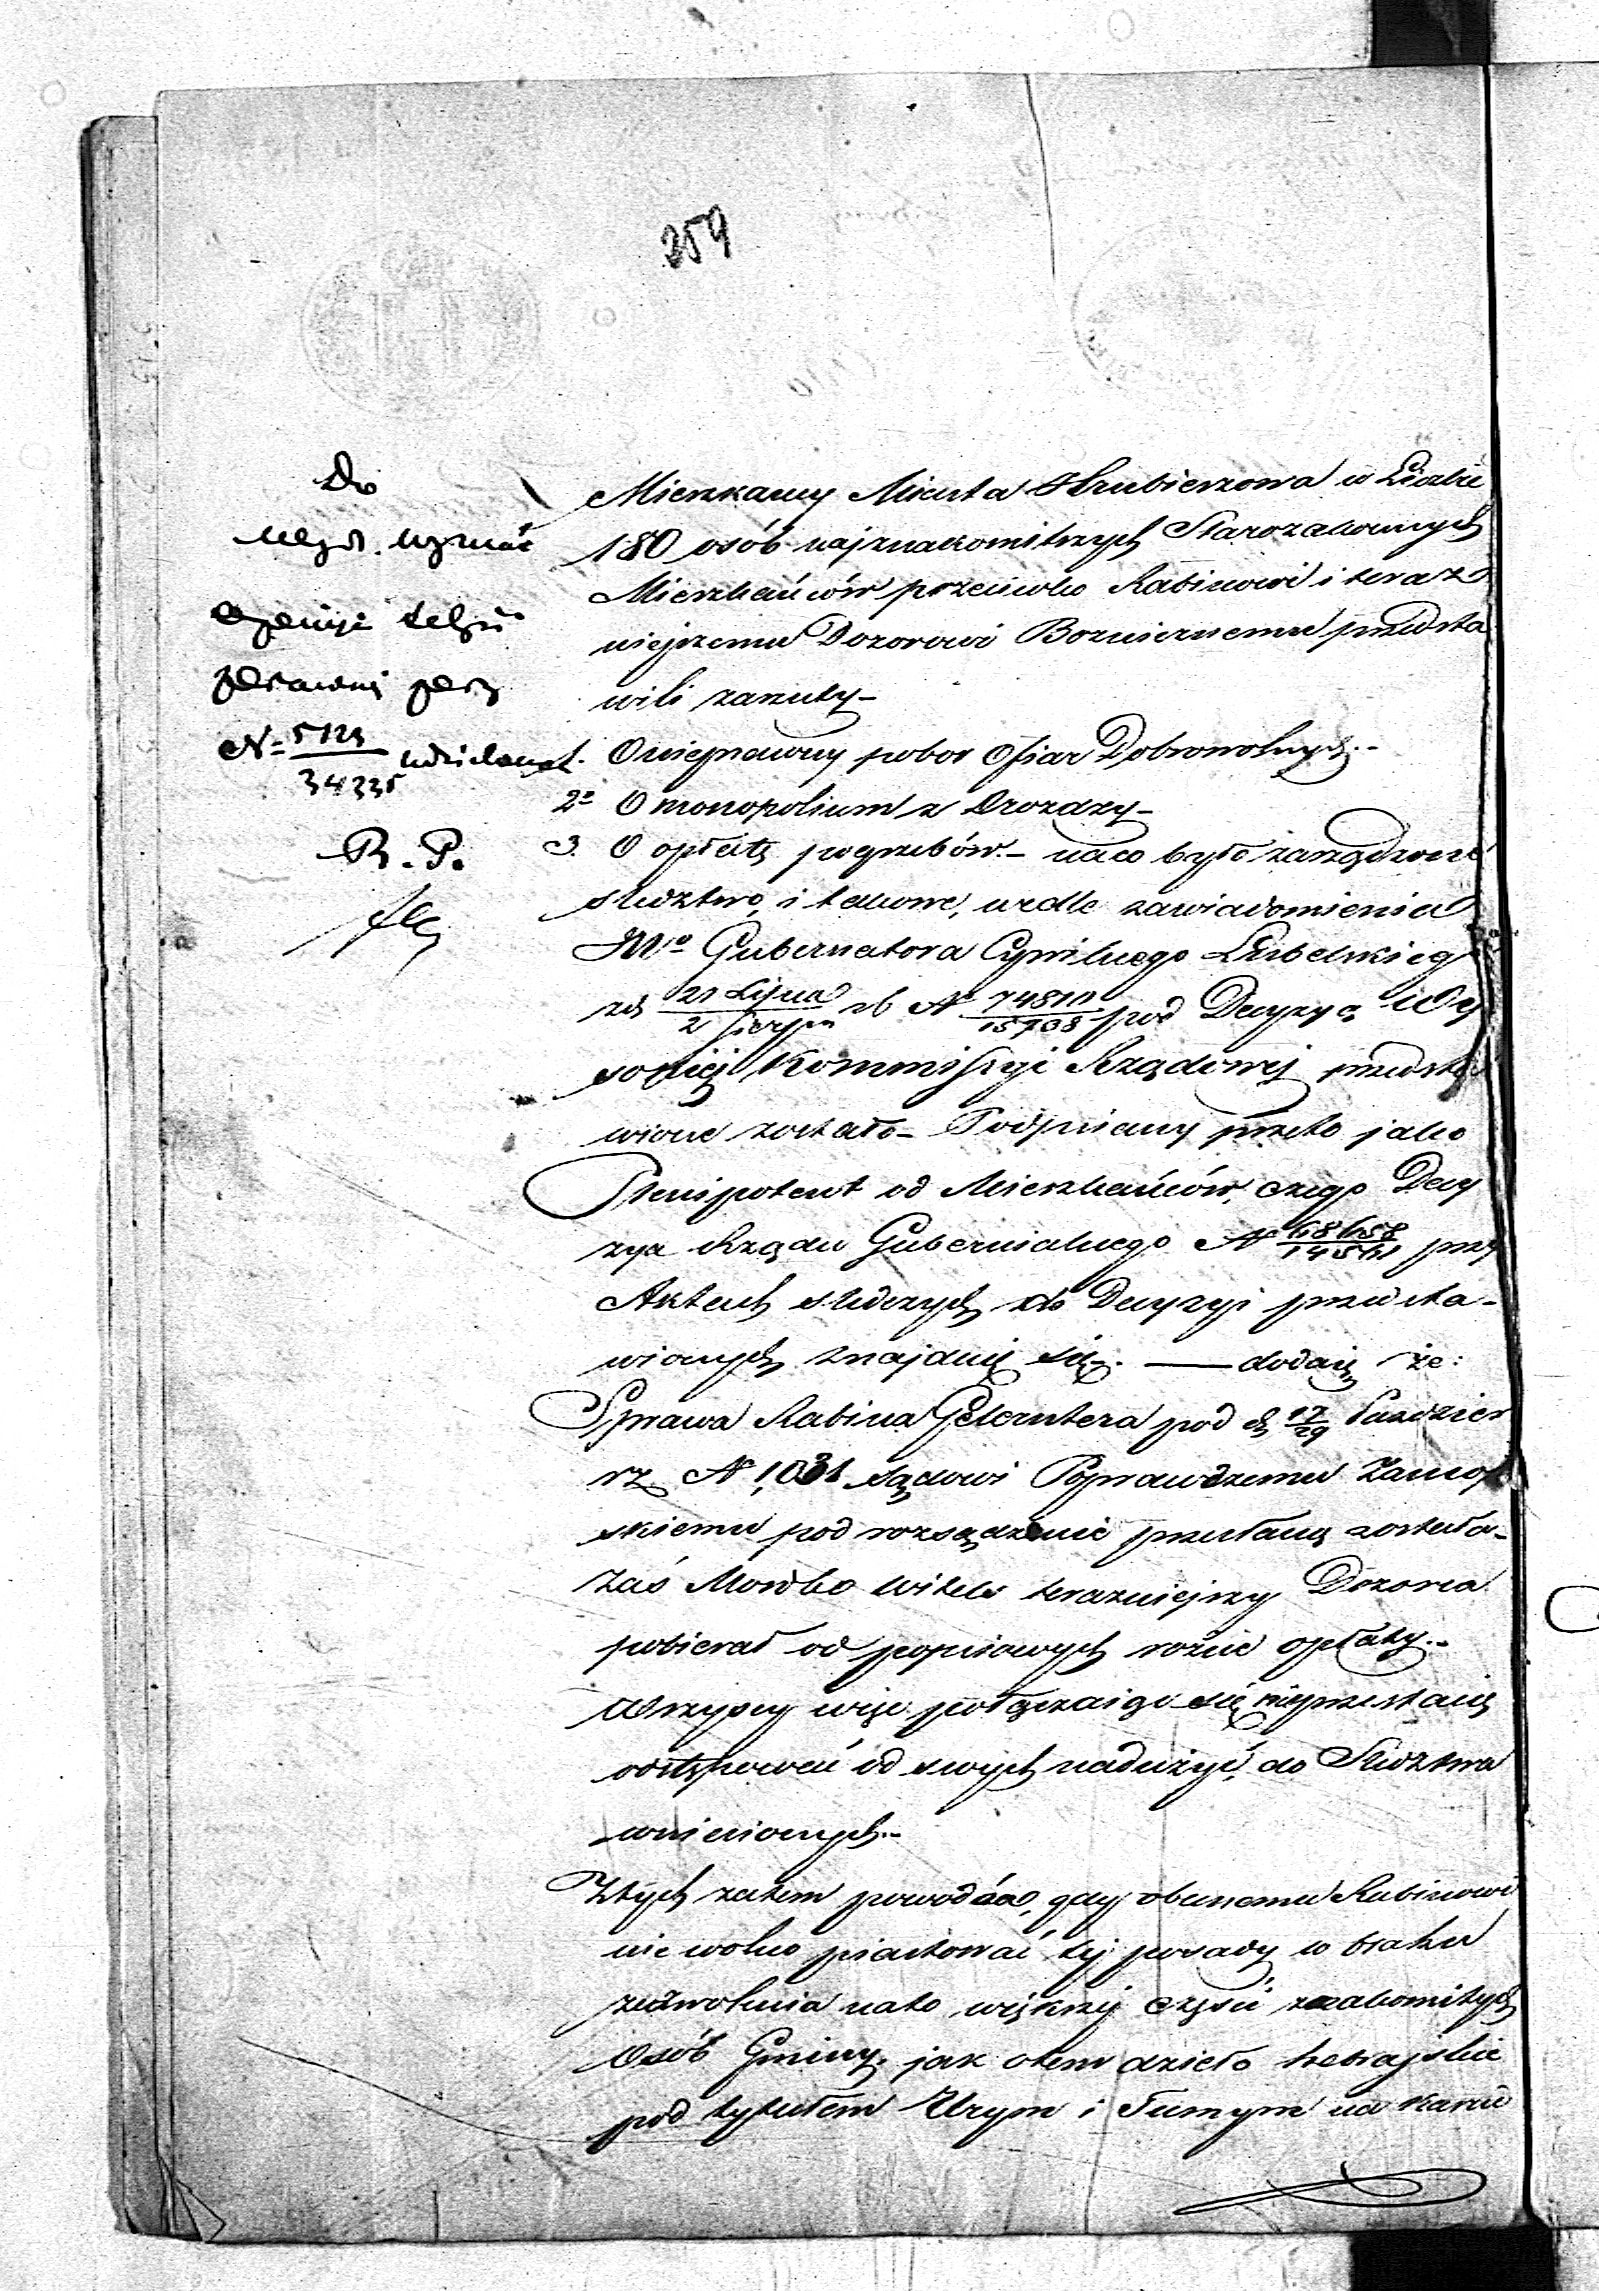 259
Do
N= 5123
34335 udzielonej
R. P.
Mieszkańcy Miasta Hrubieszowa w Liczbie
180 osób najznakomitszych Starozakonnych
Mieszkańców przeciwko Rabinowi i teraz
niejszemu Dozorowi Bozniczemu przedsta
wili zarzuty –
1. O nieprawny pobor Ofiar Dobrowolnych. –
2o O monopolium z Drozdzy –
3. O opłatę pogrzebów. – na co było zarządzone
sledztwo, i takowe, wedle zawiadomienia
JWo Gubernatora Cywilnego Lubelskieg
zd 21 Lipca
2 Sierpn rb No 74810
15208 pod Decyzyą Wy
sokiej Kommissyi Rządowej przedsta
wione zostało – Podpisany przeto jako
Plenipotent od Mieszkańców, czego Decy
zya Rządu Gubernialnego No 68658
14561 przy
Aktach sledczych do Decyzyi przedsta-
wionych znajduię się. — dodaię że:
Sprawa Rabina Gelerntera pod d. 17
29 Pazdzier
rz No 1,031 Sądowi Poprawczemu Zamoy
skiemu pod rozsądzenie przesłaną została –
Zaś Mowko Witels terazniejszy Dozorca
pobierał od popisowych rożne opłaty. –
Wszyscy więc połączaiąc się nieprzestaią
odstępować od swych nadużyć, do Sledztwa
wniesionych. –
Z tych zatem powodów, gdy obecnemu Rabinowi
nie wolno piastować tej posady w braku
zezwolenia na to większej części znakomitych
Osób Gminy, jak o tem dzieło hebrajskie
pod tytułem Urym i Tumym na karcie